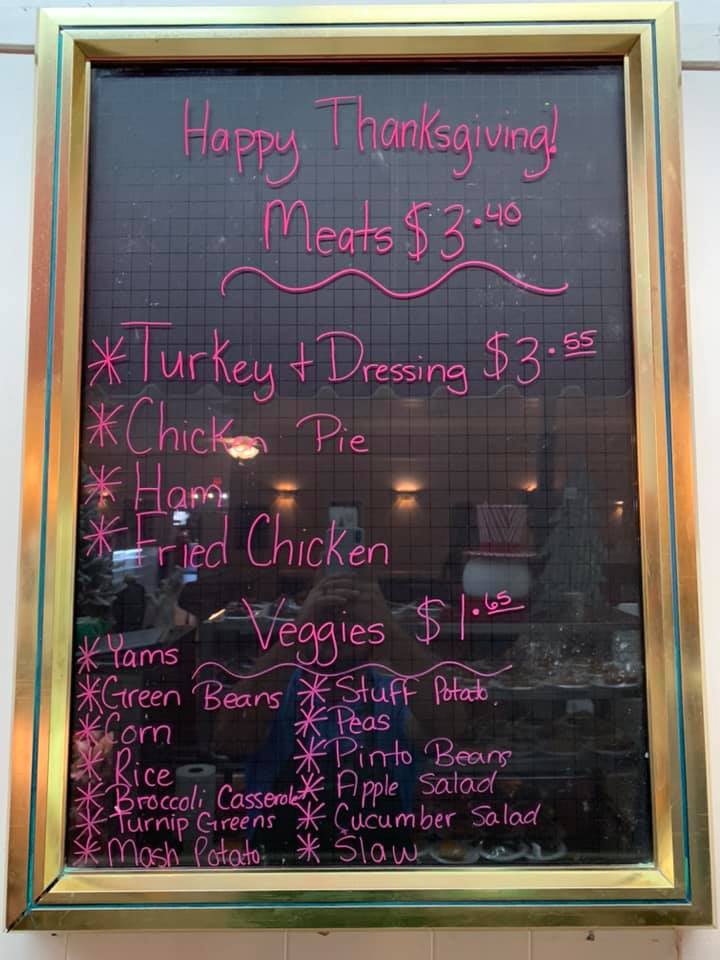 Happy Thanksgiving!
Meats $3.40
* Turkey + Dressing $3.55
* Chicken Pie
* Ham
* Fried Chicken
Veggies $1.65
* Yams
* Green Beans
* Corn
* Rice
* Broccoli Casserole
* Turnip Greens
* Mash Potato
* Stuff Potato
* Peas
* Pinto Beans
* Apple Salad
* Cucumber Salad
* Slaw